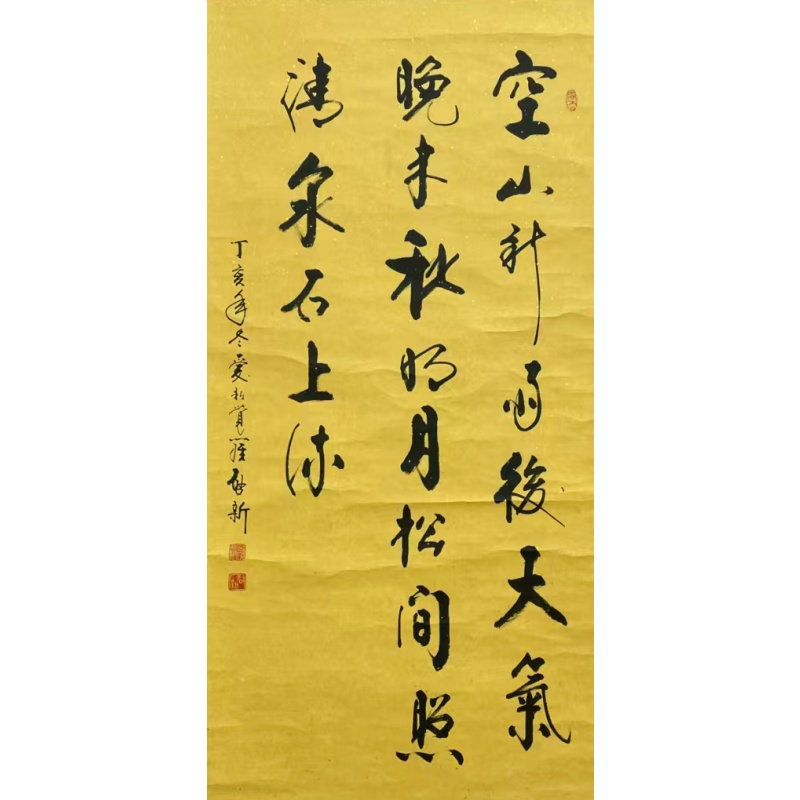 空山新雨後天氣
晚来秋明月松间照
清泉石上流
丁亥年冬愛新覺羅新